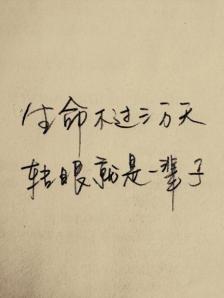 生命不过三万天
转眼就是一辈子